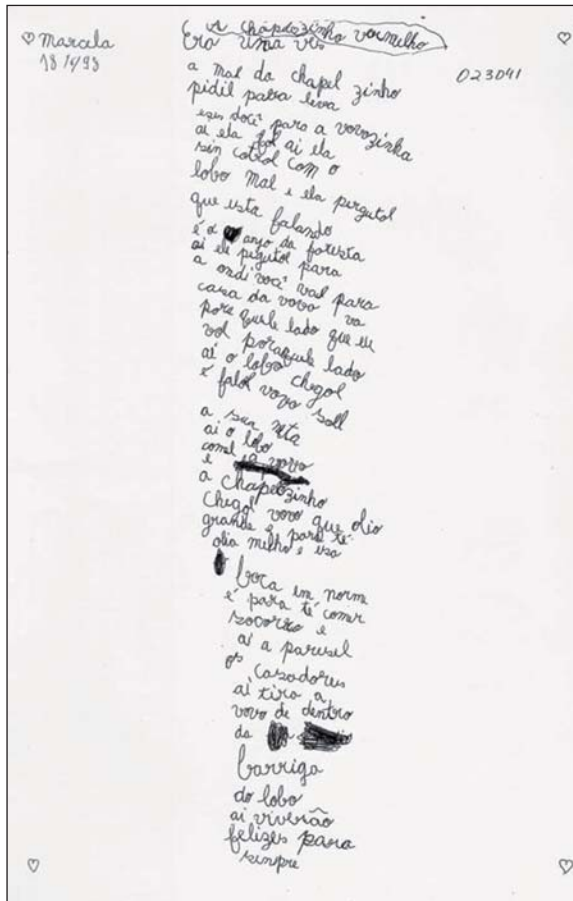 A chapeozinho vormelho
Marcela
18/9/93
Era uma ves
023041
a mal da chapel zinho
pidil para leva
eses doci para a vovozinha
ai ela fol ai ela
sin cotrol com o
lobo mal e ela pergutol
que esta falando
é o anjo da foresta
ai ele pegutol para
a ondi voci val para
casa da vovo va
pore quele lado que eu
vol poraquele lado
ai o lobo chegol
e falol vovo soll
a sua neta
ai o lobo
comel vovo
e
a chapeozinho
chegol vovo que olio
grande é para te
olia melho e esa
boca em norme
é para te comer
socorro e
ai a paresel
os casadores
ai tiro a
vovo de dentro
da
barriga
do lobo
ai viverão
felizes para
sempre